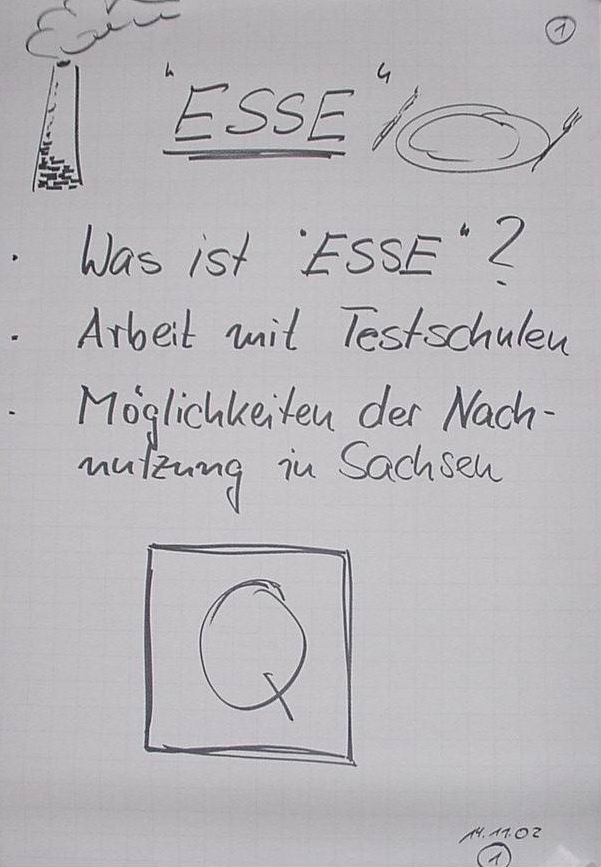 1
"ESSE"
· Was ist "ESSE"?
· Arbeit mit Testschulen
· Möglichkeiten der Nach-
nutzung in Sachsen
Q
14.11.02
1